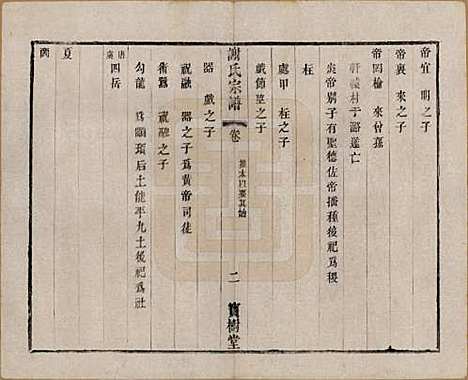 帝宜 明之子
帝襄 來之子
帝罔榆 來曾孫
軒轅村于潞遂亡
柱
炎帝别子有聖德佐帝播種後祀爲稷
慶甲 柱之子
戲節莖之子
謝氏宗譜 卷 二 寶樹堂
器 戲之子
祝融 器之子爲黄帝司徒
術囂 祝融之子
勾龍 爲顓頊后土能平九土後祀爲社
唐虞 四岳
夏
商